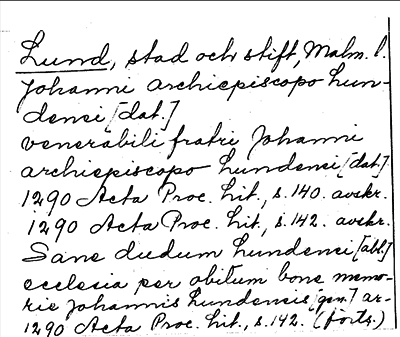 Lund, stad och stift, Malm. l.
Johanni archiepiscopo Lun-
densi [dat.]
venerabili fratri Johanni
archiepiscopo Lundensi [dat.]
1290 Acta Proc. lit., s. 140. avskr.
1290 Acta Proc. lit., s. 142. avskr.
Sane dudum Lundensi [abl.]
ecclesia per obitum bone memo-
rie Johannis Lundensis [gen.] ar-
1290 Acta Proc. lit., s. 142. (forts.)